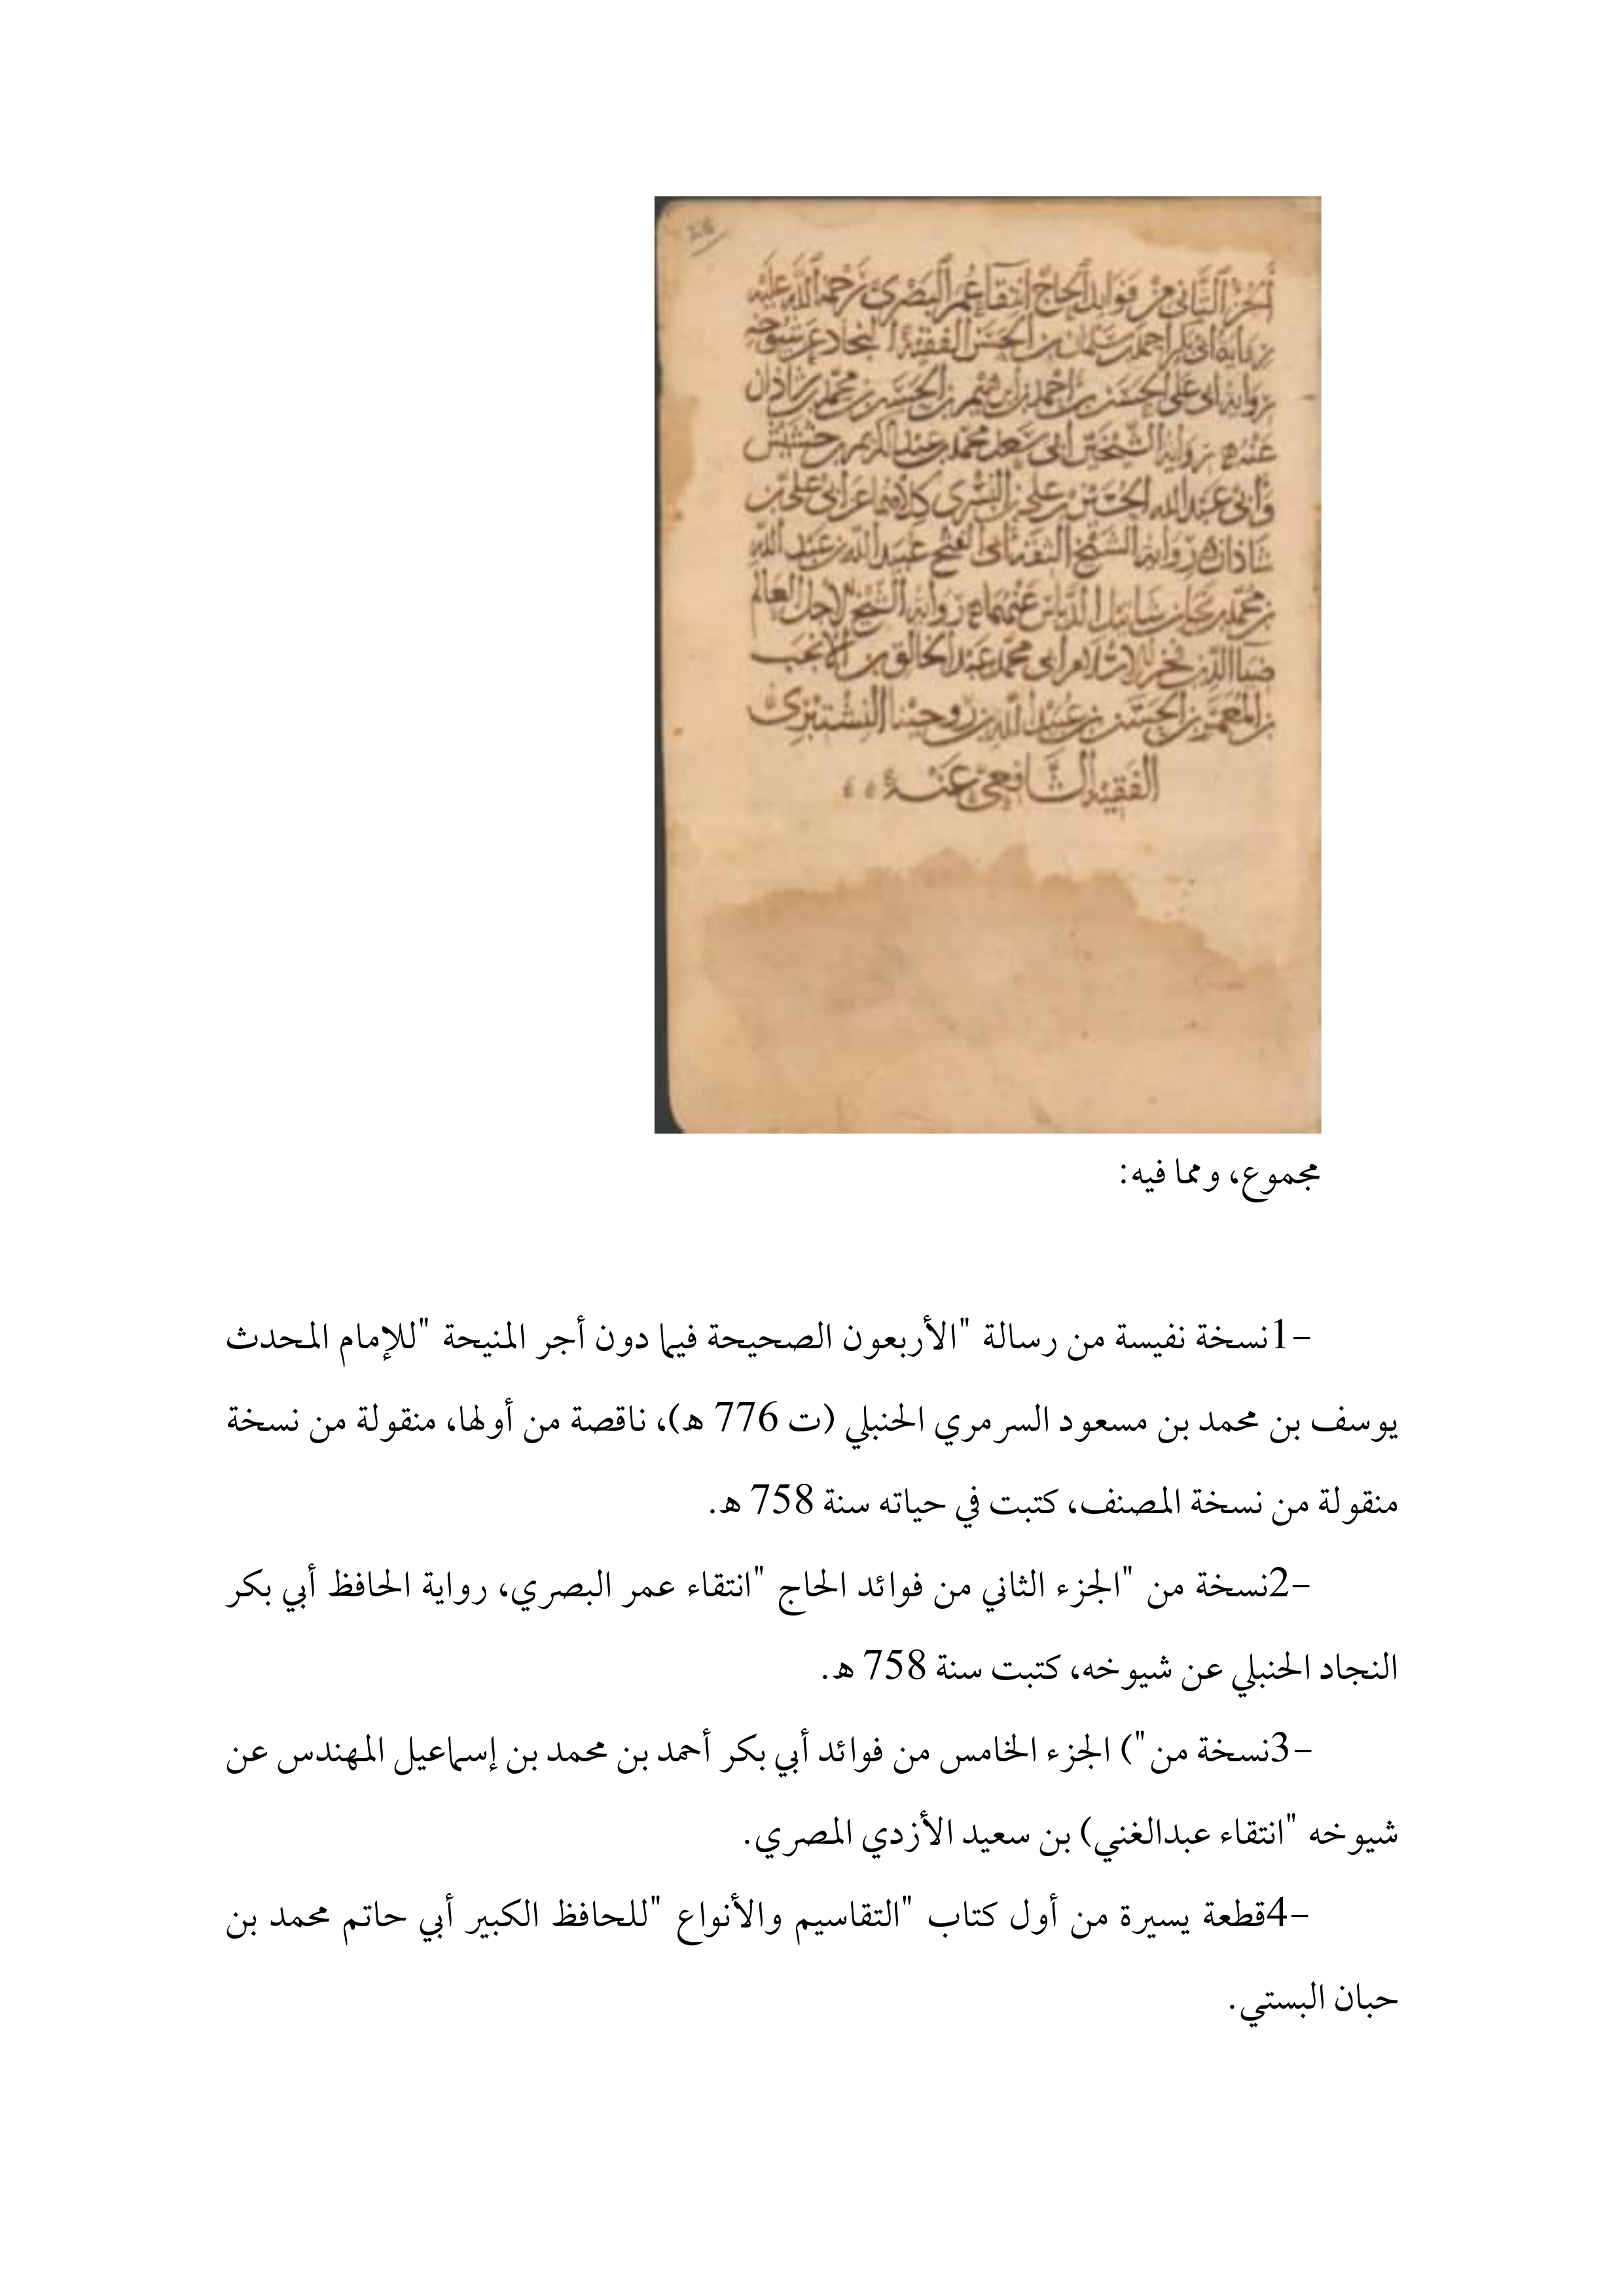 الجزء الثاني من فوائد الحاج انتقا عمر البصري رحمة الله عليه
رواية ابي بكر احمد بن سلمان بن الحسن الفقيه النجاد عن شيوخه
رواية ابي علي الحسن بن احمد بن ابرهيم بن الحسن بن محمد بن شاذان
عنه رواية الشيخين ابي سعد محمد بن عبد الكريم بن خشيش
وابي عبد الله الحسين بن علي بن البسري كلاهما عن ابي علي بن
شاذان رواية الشيخ الثقة ابي الفتح عبيد الله بن عبد الله
بن محمد بن نجا بن شاتيل الدباس عنهما رواية الشيخ الاجل العالم
ضيا الدين فخر الاسلام ابي محمد عبد الخالق بن الانجب
بن المعمر بن الحسن بن عبيد الله النشتبري
الفقيه الشافعي عنه
مجموع، ومما فيه:
-1نسخة نفيسة من رسالة "الأربعون الصحيحة فيما دون أجر المنيحة "للإمام المحدث
يوسف بن محمد بن مسعود السرمري الحنبلي (ت 776 هـ)، ناقصة من أولها، منقولة من نسخة
منقولة من نسخة المصنف، كتبت في حياته سنة 758 هـ.
-2نسخة من "الجزء الثاني من فوائد الحاج "انتقاء عمر البصري، رواية الحافظ أبي بكر
النجاد الحنبلي عن شيوخه، كتبت سنة 758 هـ.
-3نسخة من") الجزء الخامس من فوائد أبي بكر أحمد بن محمد بن إسماعيل المهندس عن
شيوخه "انتقاء عبدالغني) بن سعيد الأزدي المصري.
-4قطعة يسيرة من أول كتاب "التقاسيم والأنواع "للحافظ الكبير أبي حاتم محمد بن
حبان البستي.